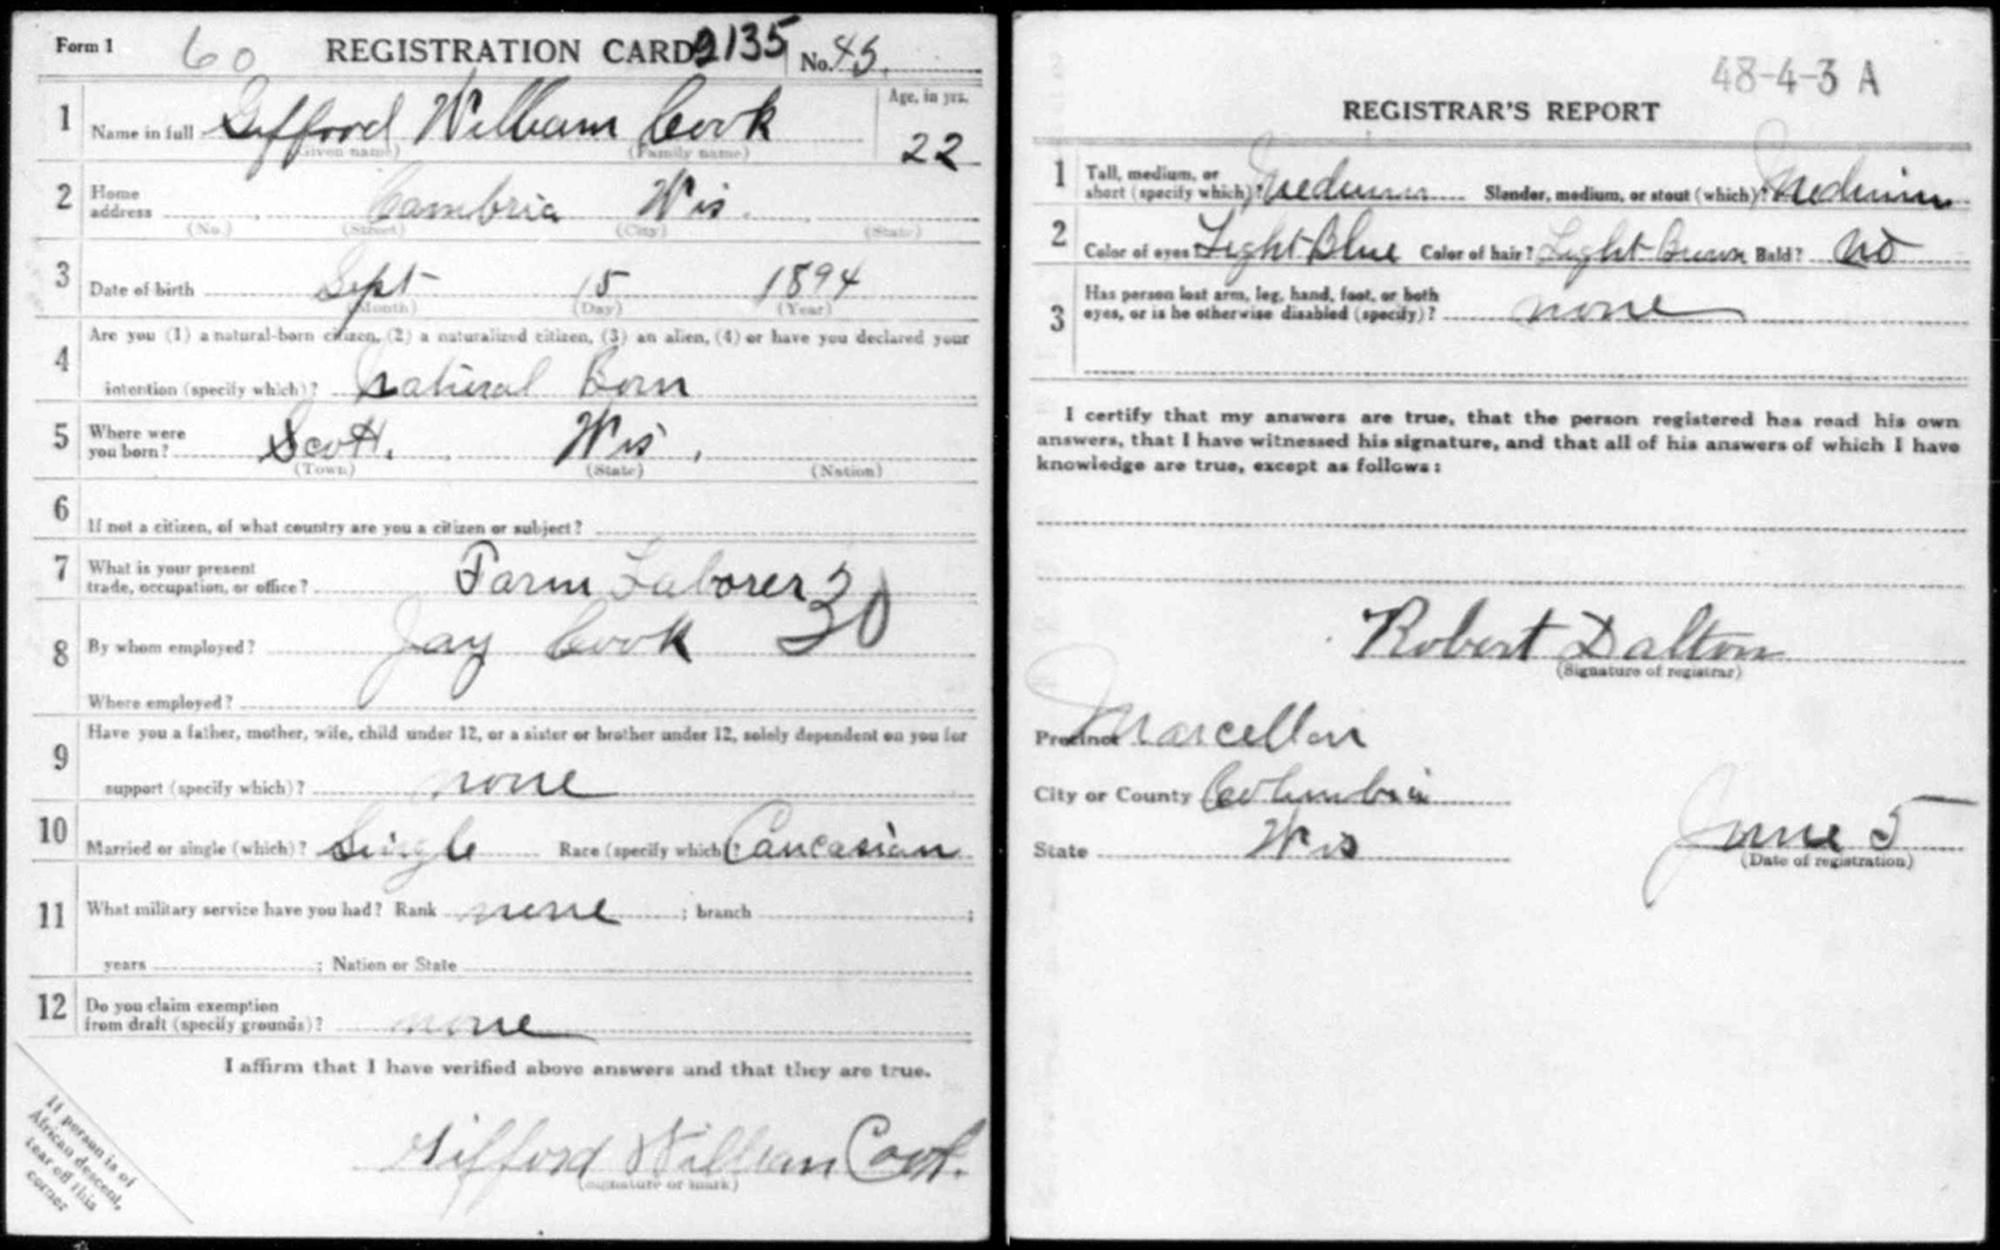 Form 1 60 REGISTRATION CARD 2135 No. 45
1 Name in full Gifford William Cook Age, in yrs. 22
(Given name) (Family name)
2 Home address Cambria Wis.
(No.) (Street) (City) (State)
3 Date of birth Sept 15 1894
(Month) (Day) (Year)
4 Are you (1) a natural-born citizen, (2) a naturalized citizen, (3) an alien, (4) or have you declared your
intention (specify which)? Natural Born
5 Where were you born? Scott, Wis,
(Town) (State) (Nation)
6 If not a citizen, of what country are you a citizen or subject?
7 What is your present trade, occupation, or office? Farm Laborer
8 By whom employed? Jay Cook 30
Where employed?
9 Have you a father, mother, wife, child under 12, or a sister or brother under 12, solely dependent on you for
support (specify which)? none
10 Married or single (which)? Single Race (specify which)? Caucasian
11 What military service have you had? Rank none ; branch ;
years ; Nation or State
12 Do you claim exemption from draft (specify grounds)? none
I affirm that I have verified above answers and that they are true.
Gifford William Cook.
(Signature or mark)
If person is of
African descent,
tear off this
corner
48-4-3 A
REGISTRAR'S REPORT
1 Tall, medium, or short (specify which)? Medium Slender, medium, or stout (which)? Medium
2 Color of eyes? Light Blue Color of hair? Light Brown Bald? No
3 Has person lost arm, leg, hand, foot, or both
eyes, or is he otherwise disabled (specify)? none
I certify that my answers are true, that the person registered has read his own
answers, that I have witnessed his signature, and that all of his answers of which I have
knowledge are true, except as follows:
Robert Dalton
(Signature of registrar)
Precinct Marcellon
City or County Columbia
State Wis June 5
(Date of registration)